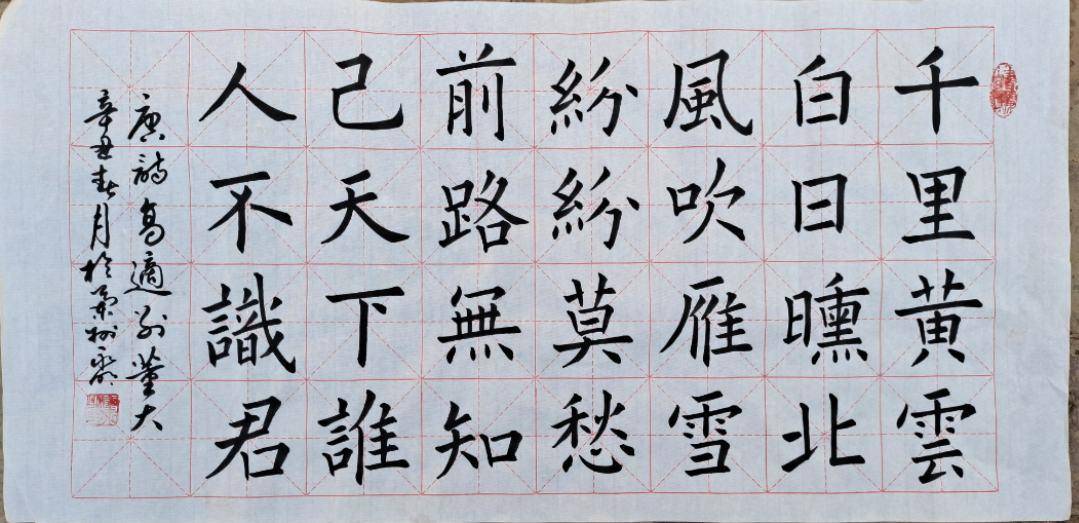 千里黄雲
白日曛北
風吹雁雪
紛紛莫愁
前路無知
己天下誰
人不識君
唐詩高適别董大
辛丑春月於